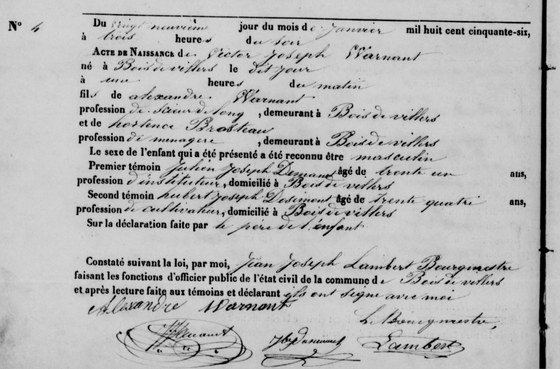 N° 4
Du vingt neuvième jour du mois de Janvier mil huit cent cinquante-six,
à trois heures du soir
ACTE DE NAISSANCE de Victor Joseph Warnant
né à Bois de villers le dit jour
à une heures du matin
fils de alexandre Warnant
profession de scieur de long, demeurant à Bois de villers
et de hortence Brosteau
profession de menagere, demeurant à Bois de villers
Le sexe de l'enfant qui a été présenté a été reconnu être masculin
Premier témoin Julien Joseph âgé de trente un ans,
profession d'instituteur, domicilié à Bois de villers
Second témoin hubert Joseph âgé de trente quatre ans,
profession de cultivateur, domicilié à Bois de villers
Sur la déclaration faite par le père de l'enfant
Constaté suivant la loi, par moi, Jean Joseph Lambert Bourgmestre
faisant les fonctions d'officier public de l'état civil de la commune de Bois de villers
et après lecture faite aux témoins et déclarant ils ont signé avec moi
Alexandre Warnant
Le Bourgmestre,
Lambert